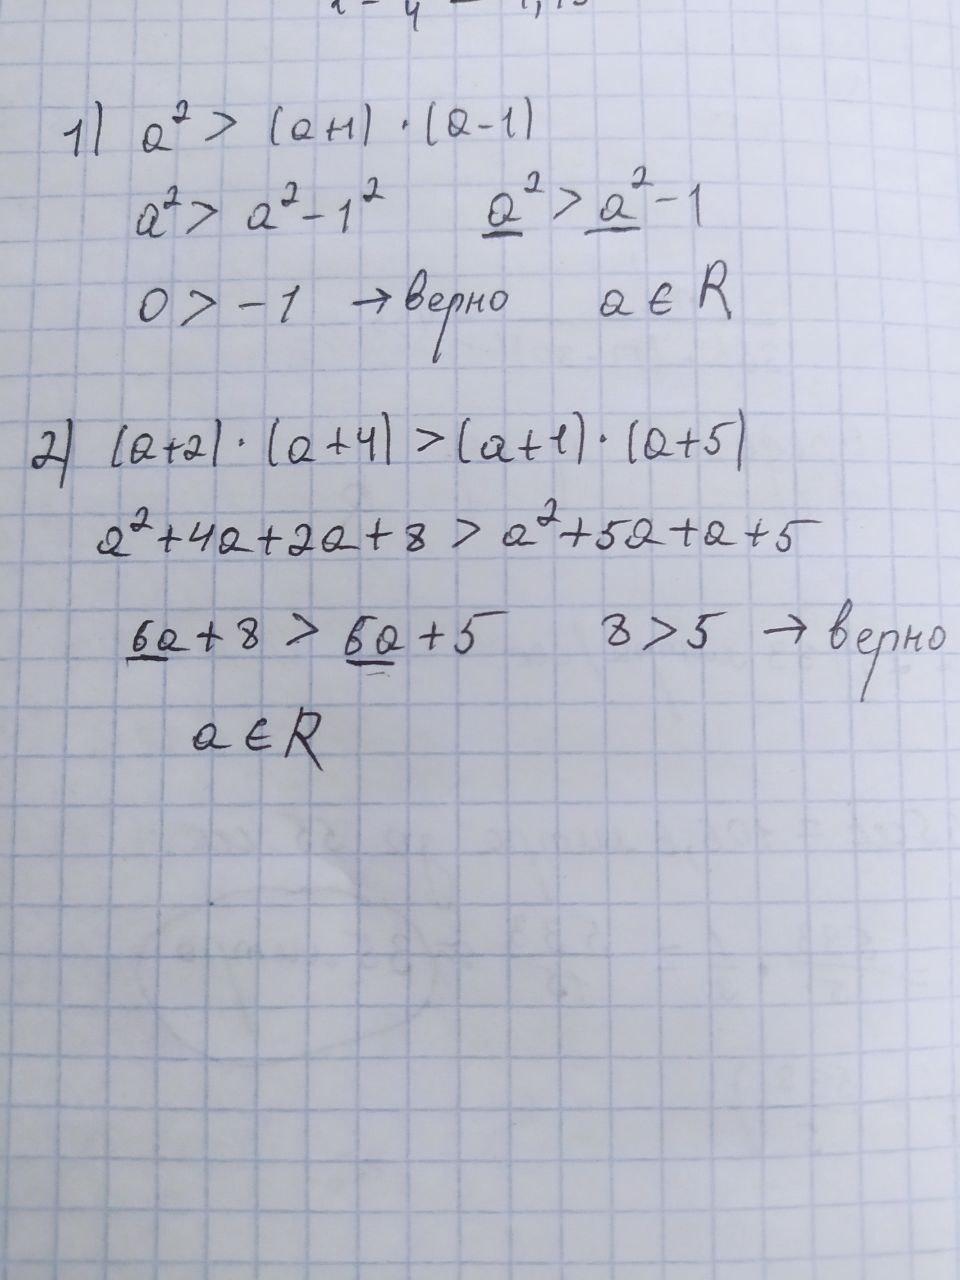 1) a² > (a+1) · (a-1)
a² > a² - 1² a² > a² - 1
0 > -1 → верно a ∈ R
2) (a+2) · (a+4) > (a+1) · (a+5)
a² + 4a + 2a + 8 > a² + 5a + a + 5
6a + 8 > 6a + 5 8 > 5 → верно
a ∈ R